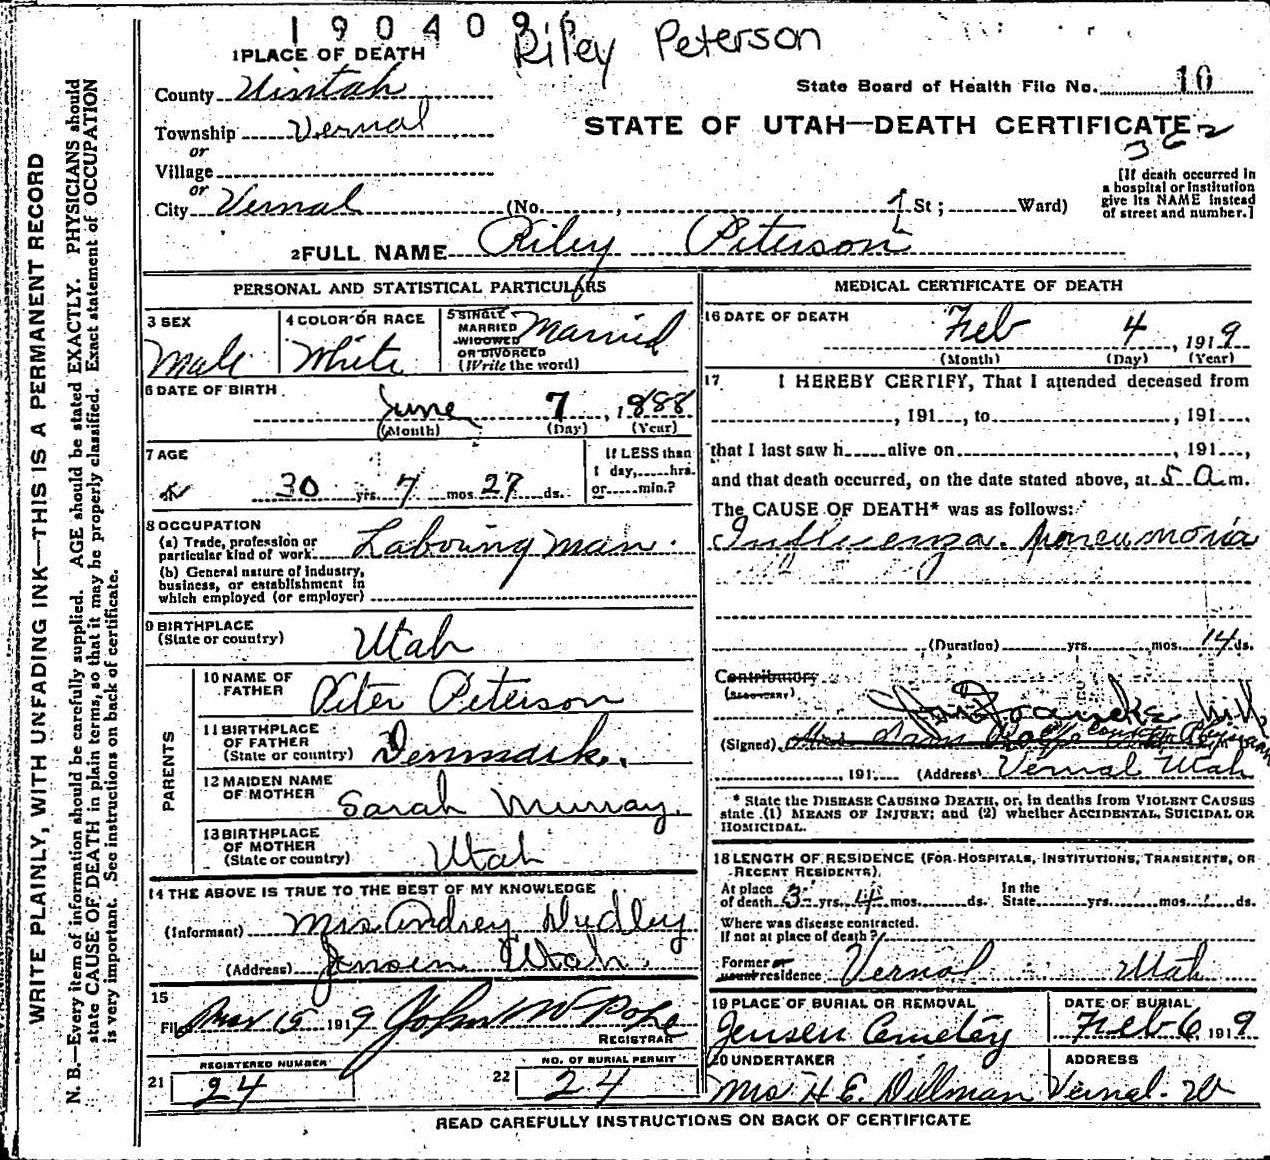 190409
Riley Peterson
1 PLACE OF DEATH
County Uintah
State Board of Health File No. 10
Township Vernal
STATE OF UTAH—DEATH CERTIFICATE
or
362
Village
or
City Vernal (No. , St; Ward)
[If death occurred in
a hospital or institution
give its NAME instead
of street and number.]
2 FULL NAME Riley Peterson
PERSONAL AND STATISTICAL PARTICULARS
3 SEX
Male
4 COLOR OR RACE
White
5 SINGLE
MARRIED
WIDOWED
OR DIVORCED
(Write the word)
Married
6 DATE OF BIRTH
June 7, 1888
(Month) (Day) (Year)
7 AGE
30 yrs. 7 mos. 27 ds.
If LESS than
1 day, hrs.
or min.?
8 OCCUPATION
(a) Trade, profession or
particular kind of work Labouring man.
(b) General nature of industry,
business, or establishment in
which employed (or employer)
9 BIRTHPLACE
(State or country) Utah
PARENTS
10 NAME OF
FATHER Peter Peterson
11 BIRTHPLACE
OF FATHER
(State or country) Denmark.
12 MAIDEN NAME
OF MOTHER Sarah Murray.
13 BIRTHPLACE
OF MOTHER
(State or country) Utah
14 THE ABOVE IS TRUE TO THE BEST OF MY KNOWLEDGE
(Informant) Mrs Andrey Dudley
(Address) Jensen Utah.
15
Filed Mar 15 1919 John W Pope
REGISTRAR
REGISTERED NUMBER
21 24
NO. OF BURIAL PERMIT
22 24
MEDICAL CERTIFICATE OF DEATH
16 DATE OF DEATH
Feb 4, 1919
(Month) (Day) (Year)
17 I HEREBY CERTIFY, That I attended deceased from
, 191 , to , 191 ,
that I last saw h alive on , 191 ,
and that death occurred, on the date stated above, at 5 a m.
The CAUSE OF DEATH* was as follows:
Influenza. Pneumonia
(Duration) yrs. mos. 14 ds.
Contributory
(SECONDARY)
(Signed)
, 191 (Address) Vernal Utah
* State the DISEASE CAUSING DEATH, or, in deaths from VIOLENT CAUSES
state (1) MEANS OF INJURY; and (2) whether ACCIDENTAL, SUICIDAL OR
HOMICIDAL.
18 LENGTH OF RESIDENCE (FOR HOSPITALS, INSTITUTIONS, TRANSIENTS, OR
RECENT RESIDENTS).
At place
of death 3 yrs. 4 mos. ds.
In the
State yrs. mos. ds.
Where was disease contracted.
If not at place of death?
Former or
usual residence Vernal Utah
19 PLACE OF BURIAL OR REMOVAL
Jensen Cemetery
DATE OF BURIAL
Feb 6, 1919
20 UNDERTAKER
Mrs H E. Dillman
ADDRESS
Vernal.
READ CAREFULLY INSTRUCTIONS ON BACK OF CERTIFICATE
WRITE PLAINLY, WITH UNFADING INK—THIS IS A PERMANENT RECORD
N. B.—Every item of information should be carefully supplied. AGE should be stated EXACTLY. PHYSICIANS should
state CAUSE OF DEATH in plain terms, so that it may be properly classified. Exact statement of OCCUPATION
is very important. See instructions on back of certificate.